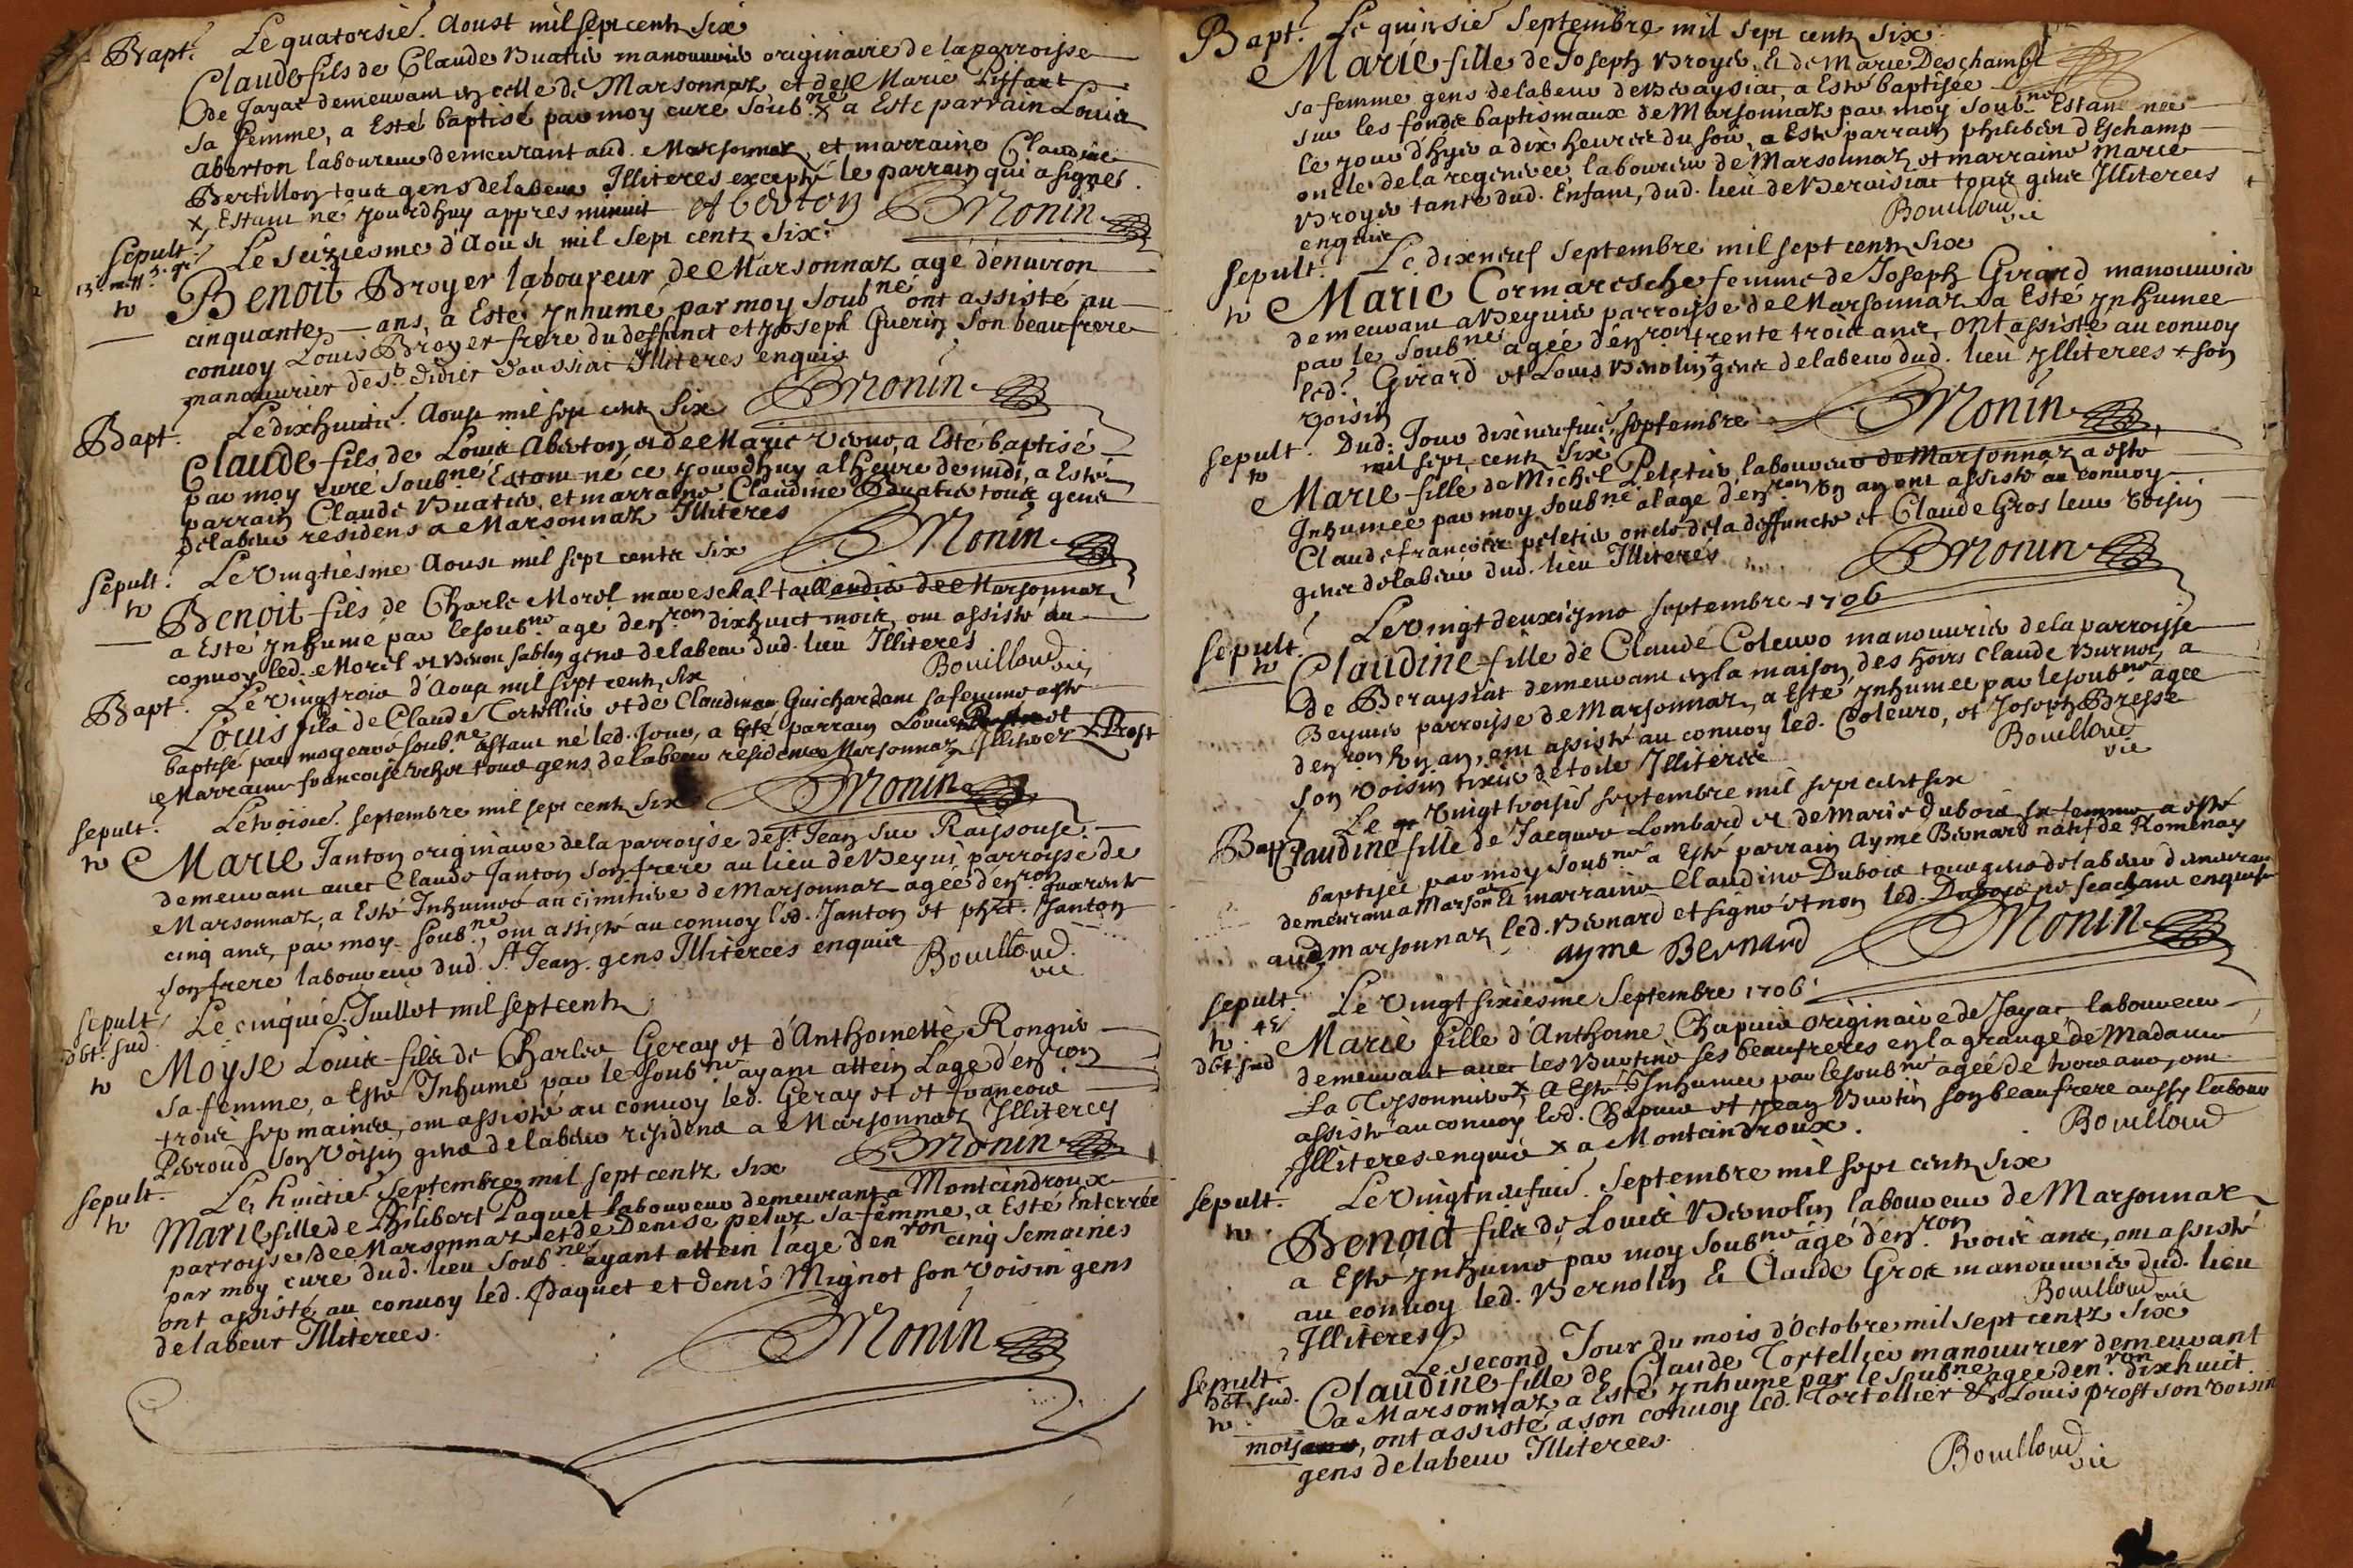 Bapt. Le quatorsie. Aoust mil sept centz Six
Claude fils de Claude Buatier manouvrier originaire de la parroisse
de Jayat demeurant en celle de Marsonnaz et de Marie Piffaut
sa femme, a Esté baptisé par moy curé Soub.né x a Este parrain Louis
Aberton laboureur demeurant aud. Marsonnaz, et marraine Claudine
Bertillon tous gens de labeur Illiteres excepté le parrain qui a signé.
x, Estant né jourdhuy appres minuit Aberton BMonin
Sepult. Le Seiziesme d'Aoust mil Sept centz Six
Benoit Broyer laboureur de Marsonnaz agé denviron
cinquante — ans, a Esté, ynhumé par moy Soub.né ont assisté au
convoy Louis Broyer frere du deffunct et Joseph Guerin Son beaufrere
manouvrier de St. didier daussiat Illiteres enquis
BMonin
Bapt. Le dixhuitie. Aoust mil sept centz Six
Claude fils de Louis Aberton, et de Marie vieno, a Esté baptisé
par moy cure Soub.né Estant né ce jourdhuy a lheure de midi, a Esté
parrain Claude Buatier, et marraine Claudine Buatier tous gens
de labeur residens a Marsonnaz Illiteres
BMonin
Sepult. Le vingtiesme Aoust mil sept centz six
Benoit fils de Charle Morel mareschal taillandier de Marsonnaz
a Esté ynhumé par le soub.né agé den.ron dixhuict mois, ont assisté au
convoy led. Morel et Benoit sablon gens de labeur dud. lieu Illiteres
Bouilloud vic
Bapt. Le vingtrois d'Aoust mil sept centz six
Louis fils de Claude Tortellier et de Claudine Guichardant sa femme a esté
baptisé par moy curé soub.né estant né led. Jour, a Esté parrain Louis et
Marraine francoise tous gens de labeur residens a Marsonnaz Illiteres x Prost
BMonin
sepult. Le troisie. septembre mil sept centz Six
Marie Janton originaire de la parroisse de St. Jean Sur Raissouse.
demeurant avec Claude Janton son frere au lieu de Beyvi, parroisse de
Marsonnaz, a Esté Inhumée au cimitiere de Marsonnaz agée d'en.ron quarente
cinq ans, par moy soub.né, ont assisté au convoy led. Janton et phil. Janton
son frere laboureur dud. St. Jean. gens Illiterees enquis Bouilloud. vic
sepult. Le cinquie. Juillet mil sept centz
dbt. sud.
Moyse Louis fils de Charles Geray et d'Anthoinette Rongier
sa femme, a Esté Inhumé par le soub.né ayant attein Lage d'en.ron
trois sepmaines, ont assisté au convoy led. Geray et et francois
Peroud son voisin gens de labeur residens a Marsonnaz Illiterees
BMonin
Sepult. Le huictie. Septembre mil sept centz Six
Marie fille de Philibert Paquet laboureur demeurant a Monteindroux
parroisse de Marsonnaz et de Denise peluz sa femme, a Esté enterrée
par moy cure dud. lieu Soub.né ayant attein láge den.ron cinq Semaines
ont assisté au convoy led. Paquet et denis Mignot son voisin gens
de labeur Illiterees.
BMonin
Bapt. Le quinsie Septembre mil sept centz Six
Marie fille de Joseph Broyer, & de Marie Deschamps
sa femme gens de labeur de Beraysiat, a Esté baptisée
sur les fonds baptismaux de Marsonnaz par moy soub.né Estant née
le jour d'hyer a dix heures du soir, a Esté parrain philibert dEschamp
oncle de la regenerée laboureur de Marsonnaz et marraine Marie
Broyer tante dud. Enfant, dud. lieu de Beraisiat tous gens Illiterees
enquis
Bouilloud vic
Sepult. Le dixneuf Septembre mil sept centz Six
Marie Cormaresche femme de Joseph Girard manouvrier
demeurant a Beyvier parroisse de Marsonnaz a Esté ynhumée
par le Soub.né agée d'en.ron trente trois ans, ont assisté au convoy
led. Girard et Louis Benolin x gens de labeur dud. lieu ylliterees x son
voisin
BMonin
sepult. Dud. Jour dix neufvie. septembre
mil sept centz Six
Marie fille de Michel Peletier, laboureur de Marsonnaz a esté
Inhumée par moy soub.né a lage d'en.ron un an ont assisté au convoy
Claude francois peletier oncle de la deffuncte et Claude Gros leur voisin
gens de labeur dud. lieu Illiteres
BMonin
Sepult. Le vingt deuxiesme septembre 1706
Claudine fille de Claude Coleuro manouvrier de la parroisse
de Beraysiat demeurant en la maison des hoirs Claude Burnot, a
Beyvier parroisse de Marsonnaz, a Esté ynhumée par le soub.né agée
den.ron un an, ont assisté au convoy led. Coleuro, et Joseph Bresse
son voisin tixier de toile Illiterees
Bouilloud vic
Bapt. Le vingt troisie septembre mil sept cent six
Claudine fille de Jacques Lombard et de Marie dubois sa femme a esté
baptisée par moy soub.né a Esté parrain Aymé Bernard natif de Romenay
demeurant a Marson.az & marraine Claudine Dubois tous gens de labeur demeurans
aud. marsonnaz led. Bernard et signé et non led. Dubois ne scachant enquise
ayme Bernard BMonin
Sepult. Le vingt sixiesme Septembre 1706
dbt. sud
Marie fille d'Anthoine Chapuis originaire de Jayat laboureur
demeurant avec les Buotins ses beaufreres en la grange de Madame
La Teysonniere x, a Esté Inhumée par le soub.né agée de trois ans, ont
assisté au convoy led. Chapuis et Jean Buotin son beaufrere aussy labour
Illiteres enquis x a Monteindroux.
Bouilloud
Sepult. Le vingtneufvie. Septembre mil sept centz Six
Benoid fils de Louis Bernolin laboureur de Marsonnaz
a Esté ynhumé par moy soub.né âgé d'en.ron trois ans, ont assisté
au convoy led. Bernolin & Claude Gros manouvrier dud. lieu
Illiteres
Bouilloud vic
Sepult. Le second Jour du mois d'Octobre mil sept centz Six
dbt. sud.
Claudine fille de Claude Tortellier manouvrier demeurant
a Marsonnaz, a Esté ynhumé par le soub.né agée den.ron dixhuit
mois, ont assisté a son convoy led. Tortellier & Louis prost son voisin
gens de labeur Illiterees.
Bouilloud vic